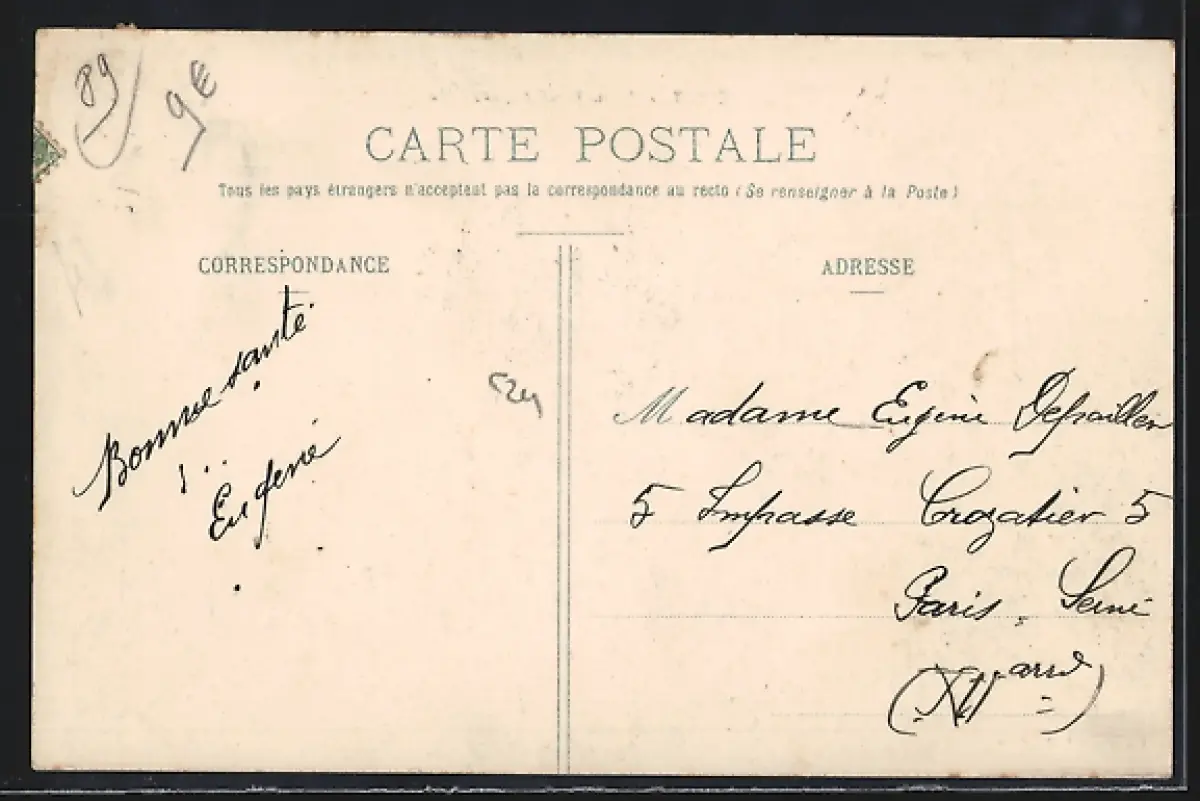 89
9€
CARTE POSTALE
Tous les pays étrangers n'acceptent pas la correspondance au recto (Se renseigner à la Poste)
CORRESPONDANCE
Bonne santé
Eugénie
ADRESSE
Madame Eugène
5 Impasse Crozatier 5
Paris, Seine
(XII arrd)